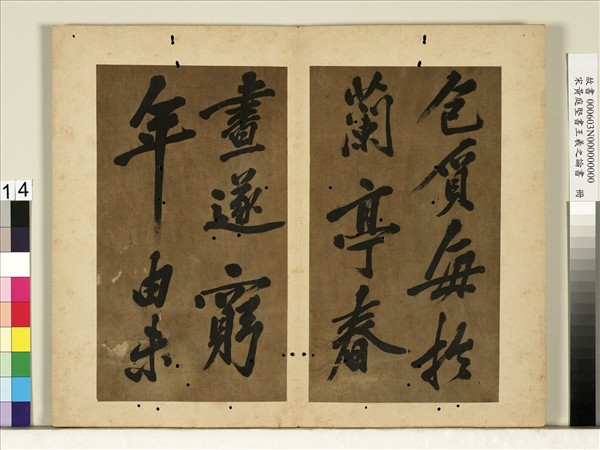 包質每於
蘭亭春
晝遂窮
年由未
故書 000603N000000000
宋黃庭堅書王羲之論書 冊
14